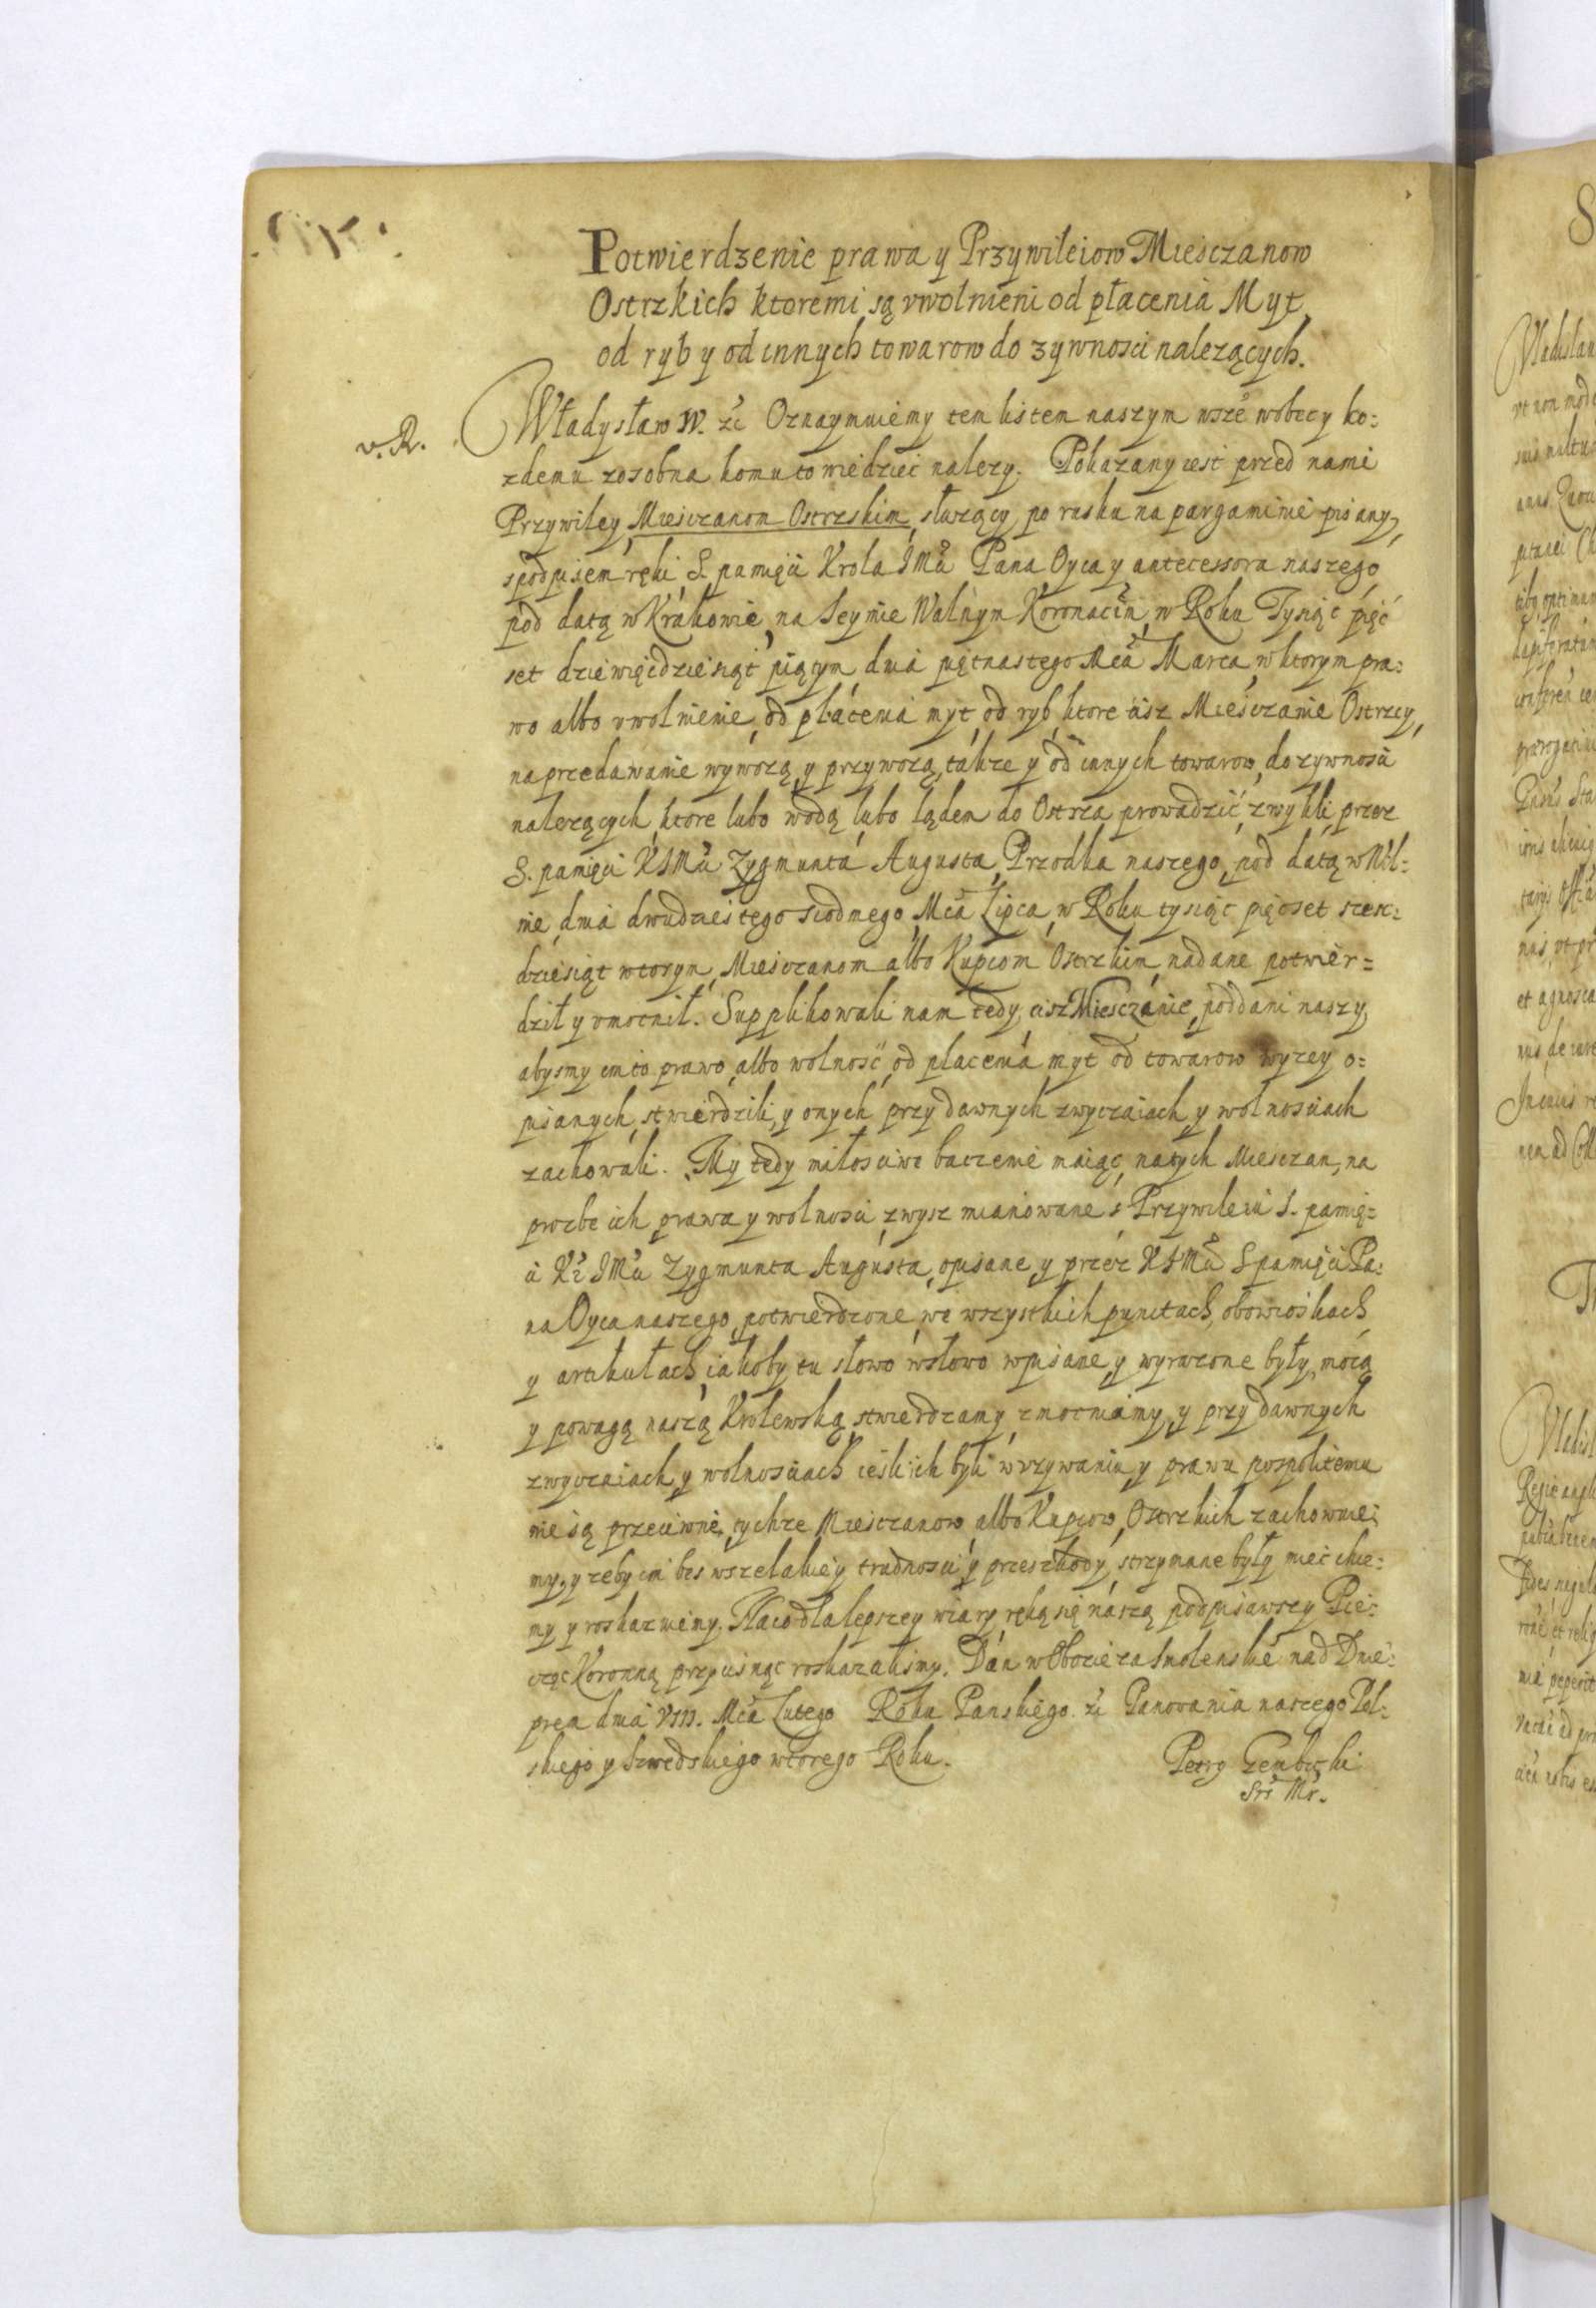 Potwierdzenie prawa y Przywileiow Miesczanow
Ostrzkich ktoremi są vwolnieni od płacenia Myt
od ryb y od innych towarow do zywnosci nalezących.
v. R.
Władysław IV. &c Oznaymuiemy tem listem naszym wsze wobec y ko:
zdemu zosobna komu to wiedziec nalezy. Pokazany iest przed nami
Przywiley Miesczanom Ostrzskim, służący po rusku na pargaminie pisany,
z podpisem ręki S. pamięci Krola JMci Pana Oyca y antecessora naszego
pod datą w Krakowie, na Seymie Walnym Koronaciey, w Roku Tysiąc pięć
set dziewięćdziesiąt piątym dnia piętnastego Mca Marca, w ktorym pra:
wo albo vwolnienie, od płacenia myt, od ryb, ktore cisz Miesczanie Ostrzcy,
na przedawanie wywożą y przywożą, także y od innych towarow, do zywnosci
nalezących, ktore lubo wodą lubo lądem do Ostrza prowadzić zwykli przez
S. pamięci KJMci Zygmunta Augusta, Przodka naszego, pod datą w Wil:
nie, dnia dwudziestego siodmego, Mca Lipca, w Roku tysiąc pięcset szesc:
dziesiąt wtorym, Miesczanom albo Kupcom Ostrzkim, nadane potwier=
dził y vmocnił. Supplikowali nam tedy, cisz Miesczanie, poddani naszy,
abysmy im to prawo, albo wolność, od placenia, myt od towarow wyzey o:
pisanych, stwierdzili, y onych przy dawnych zwyczaiach y wolnosciach
zachowali. My tedy miłosciwe baczenie maiąc, na tych Miesczan, na
prozbe ich prawa y wolnosci, zwysz mianowane s Przywileiu S. pamię:
ci Kr JMci Zygmunta Augusta, opisane, y przez KJMci S pamięci Pa:
na Oyca naszego, potwierdzone, we wszystkich punctach, obowioskach
y artikułach, iakoby tu słowo w słowo wpisane, y wyrazone były, mocą
y powagą naszą Krolewską, stwierdzamy, zmocniamy, y przy dawnych
zwyczaiach, y wolnosciach ieśli ich byli w vzywaniu, y prawu pospolitemu
nie są przeciwne, tychze Miesczanow, albo Kupcow, Ostrzkich zachowuie:
my, y zeby im bes wszelakiey trudnosci y przeszkody, strzymane były miec chce:
my y roskazuiemy. Na co dla lepszey wiary, ręką się naszą podpisawszy Pie:
częc Koronną przycisnąc roskazalismy. Dan w Obozie za Smolenskiem nad Dnie:
prem dnia VIII. Mca Lutego Roku Panskiego. &c Panowania naszego Pol:
skiego y Szwedskiego wtorego Roku.
Petrg Gembicki
Srs Mr.